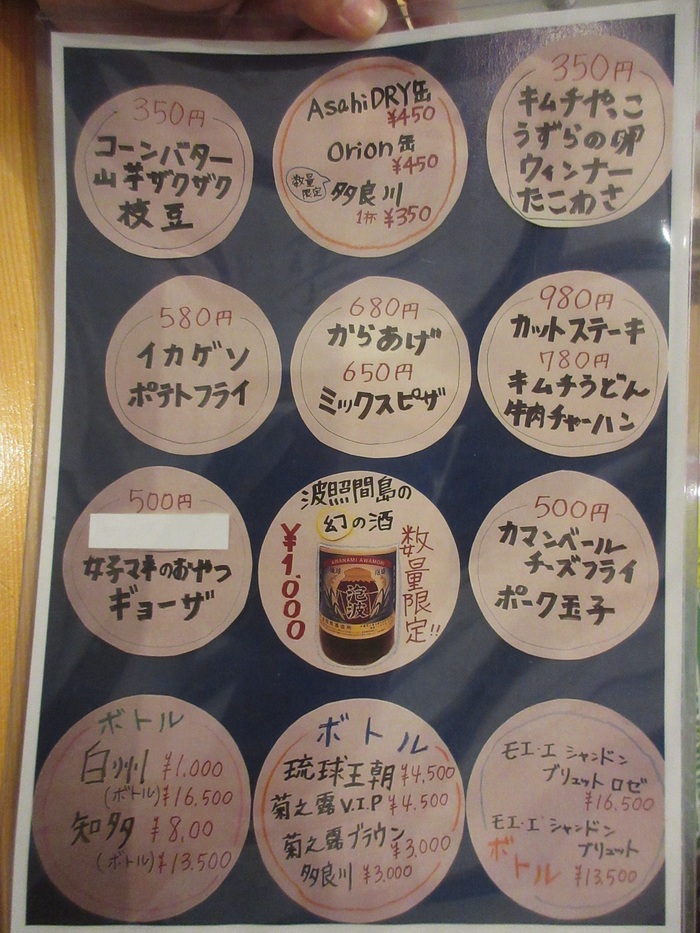 350円
コーンバター
山芋ザクザク
枝豆
Asahi DRY缶
¥450
Orion缶
¥450
数量限定
多良川
1杯 ¥350
350円
キムチやっこ
うずらの卵
ウィンナー
たこわさ
580円
イカゲソ
ポテトフライ
680円
からあげ
650円
ミックスピザ
980円
カットステーキ
780円
キムチうどん
牛肉チャーハン
500円
女子マネのおやつ
ギョーザ
波照間島の
幻の酒
¥1,000
数量限定!!
HANAMI AWAMORI
泡波
500円
カマンベール
チーズフライ
ポーク玉子
ボトル
白州 ¥1,000
(ボトル)¥16,500
知多 ¥8,00
(ボトル)¥13,500
ボトル
琉球王朝 ¥4,500
菊之露V.I.P ¥4,500
菊之露ブラウン
¥3,000
多良川 ¥3,000
モエ・エ シャンドン
ブリュット ロゼ
¥16,500
モエ・エ シャンドン
ブリュット
ボトル ¥13,500